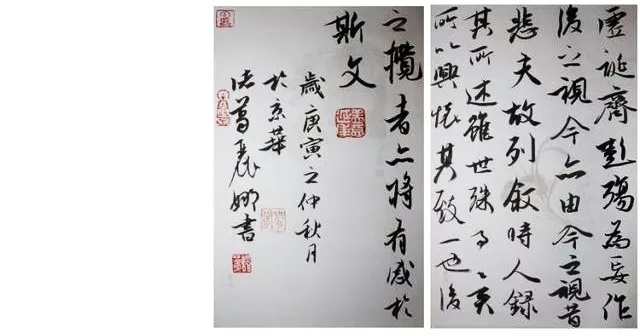 虛誕齊彭殤為妄作
後之視今亦由今之視昔
悲夫故列敘時人錄
其所述雖世殊事異
所以興懷其致一也後
之攬者亦將有感於
斯文
歲庚寅之仲秋月
於京華
諸葛麗娜書